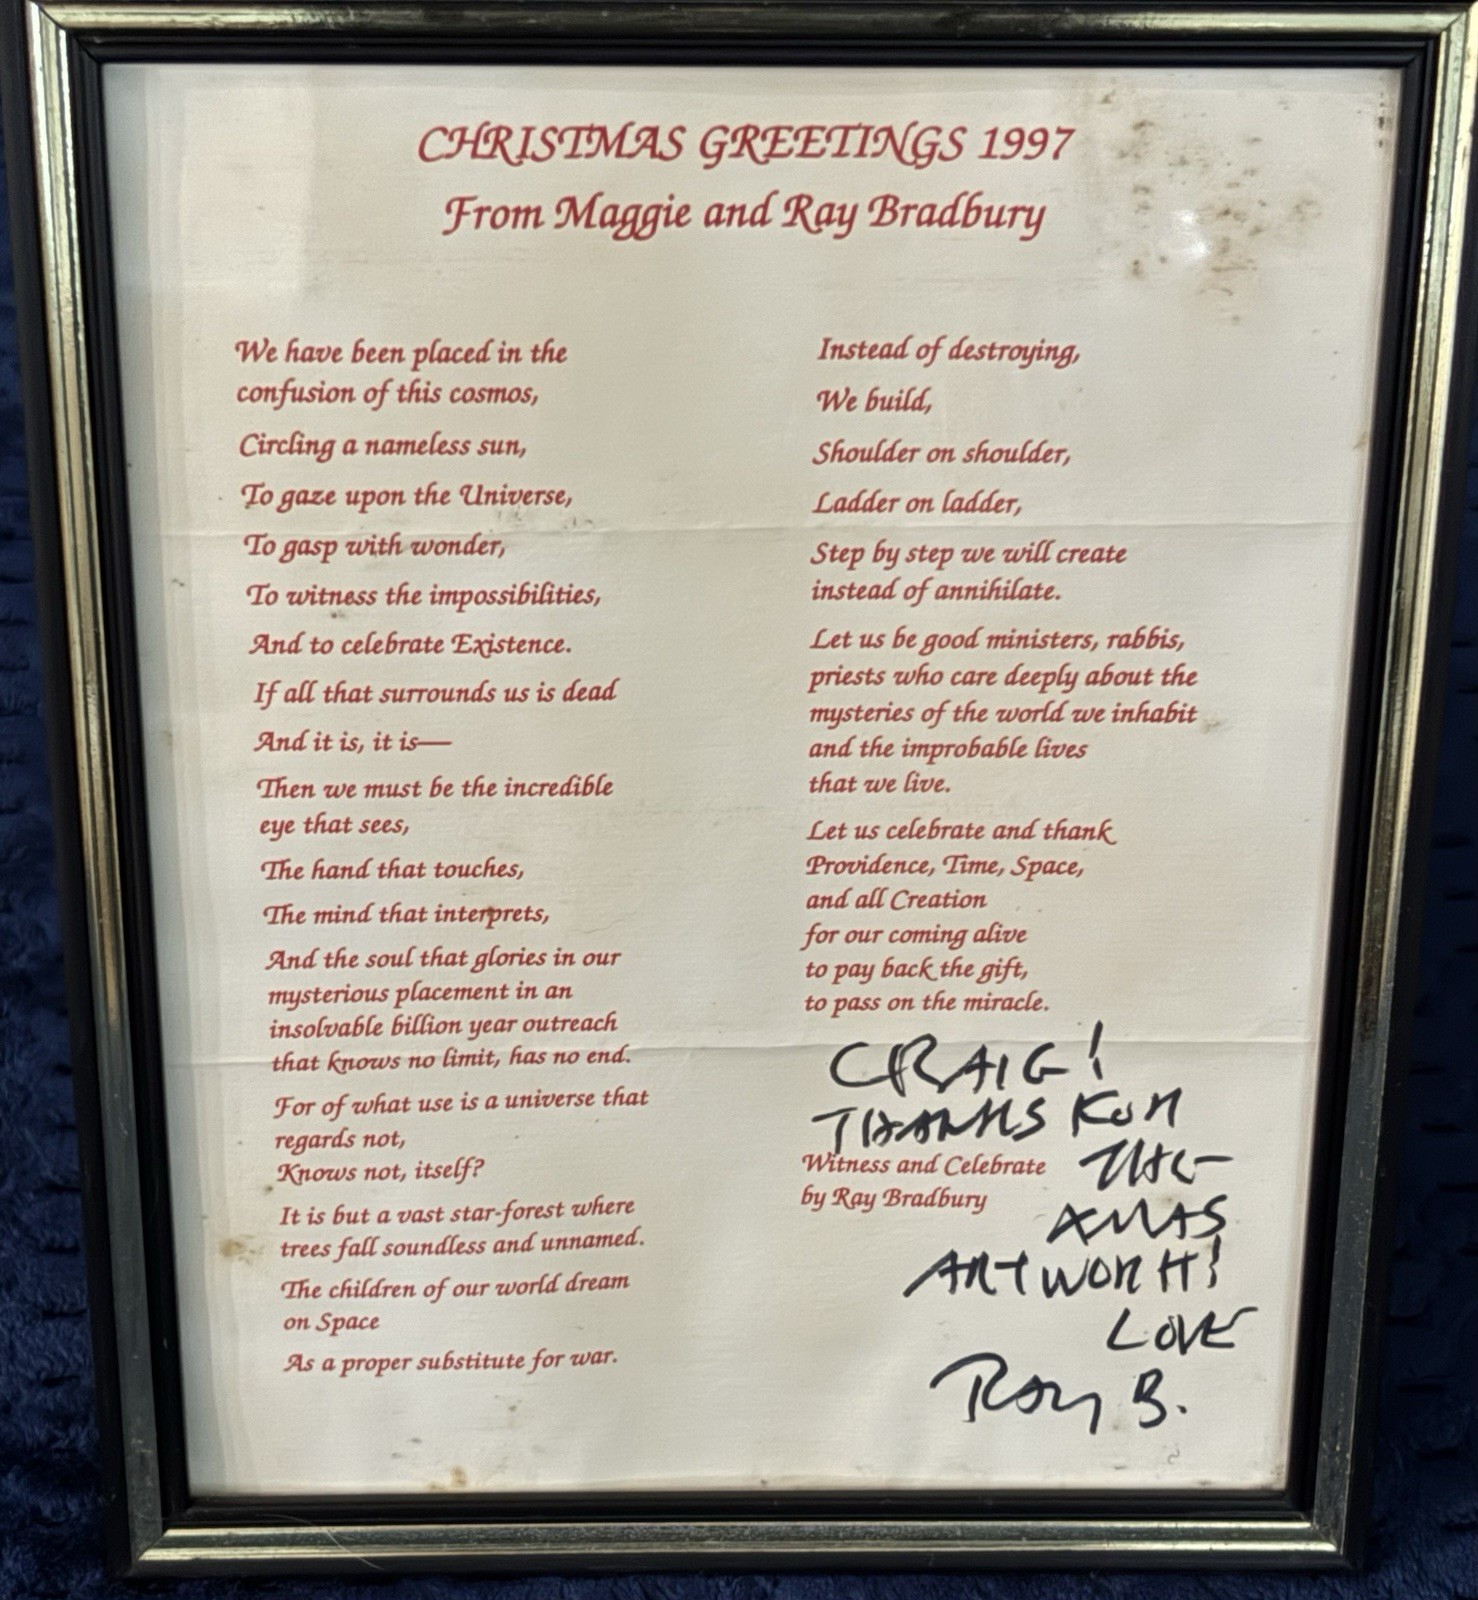 CHRISTMAS GREETINGS 1997
From Maggie and Ray Bradbury
We have been placed in the
confusion of this cosmos,
Circling a nameless sun,
To gaze upon the Universe,
To gasp with wonder,
To witness the impossibilities,
And to celebrate Existence.
If all that surrounds us is dead
And it is, it is—
Then we must be the incredible
eye that sees,
The hand that touches,
The mind that interprets,
And the soul that glories in our
mysterious placement in an
insolvable billion year outreach
that knows no limit, has no end.
For of what use is a universe that
regards not,
Knows not, itself?
It is but a vast star-forest where
trees fall soundless and unnamed.
The children of our world dream
on Space
As a proper substitute for war.
Instead of destroying,
We build,
Shoulder on shoulder,
Ladder on ladder,
Step by step we will create
instead of annihilate.
Let us be good ministers, rabbis,
priests who care deeply about the
mysteries of the world we inhabit
and the improbable lives
that we live.
Let us celebrate and thank
Providence, Time, Space,
and all Creation
for our coming alive
to pay back the gift,
to pass on the miracle.
CRAIG!
THANKS FOR
THE
XMAS
ARTWORK!
LOVE
Ray B.
Witness and Celebrate
by Ray Bradbury